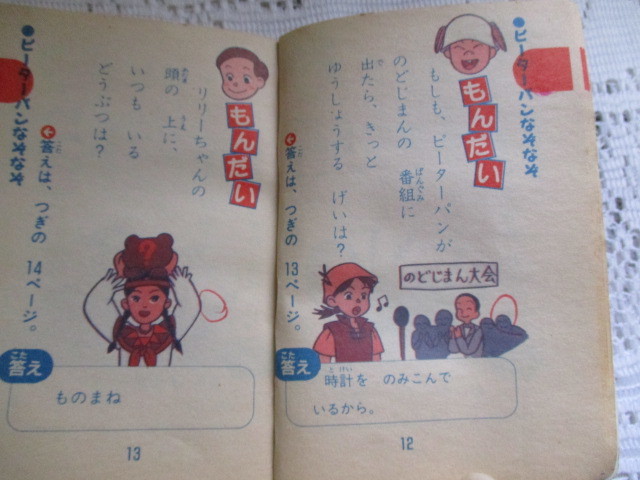 ●ピーターパンなぞなぞ
もんだい
もしも、ピーターパンが
のどじまんの 番組に
ばんぐみ
出たら、きっと
で
ゆうしょうする げいは？
←答えは、つぎの 13ページ。
こた
のどじまん大会
答え
こた
時計を のみこんで
とけい
いるから。
12
●ピーターパンなぞなぞ
もんだい
リリーちゃんの
頭の 上に、
あたま うえ
いつも いる
どうぶつは？
←答えは、つぎの 14ページ。
こた
?
答え
こた
ものまね
13